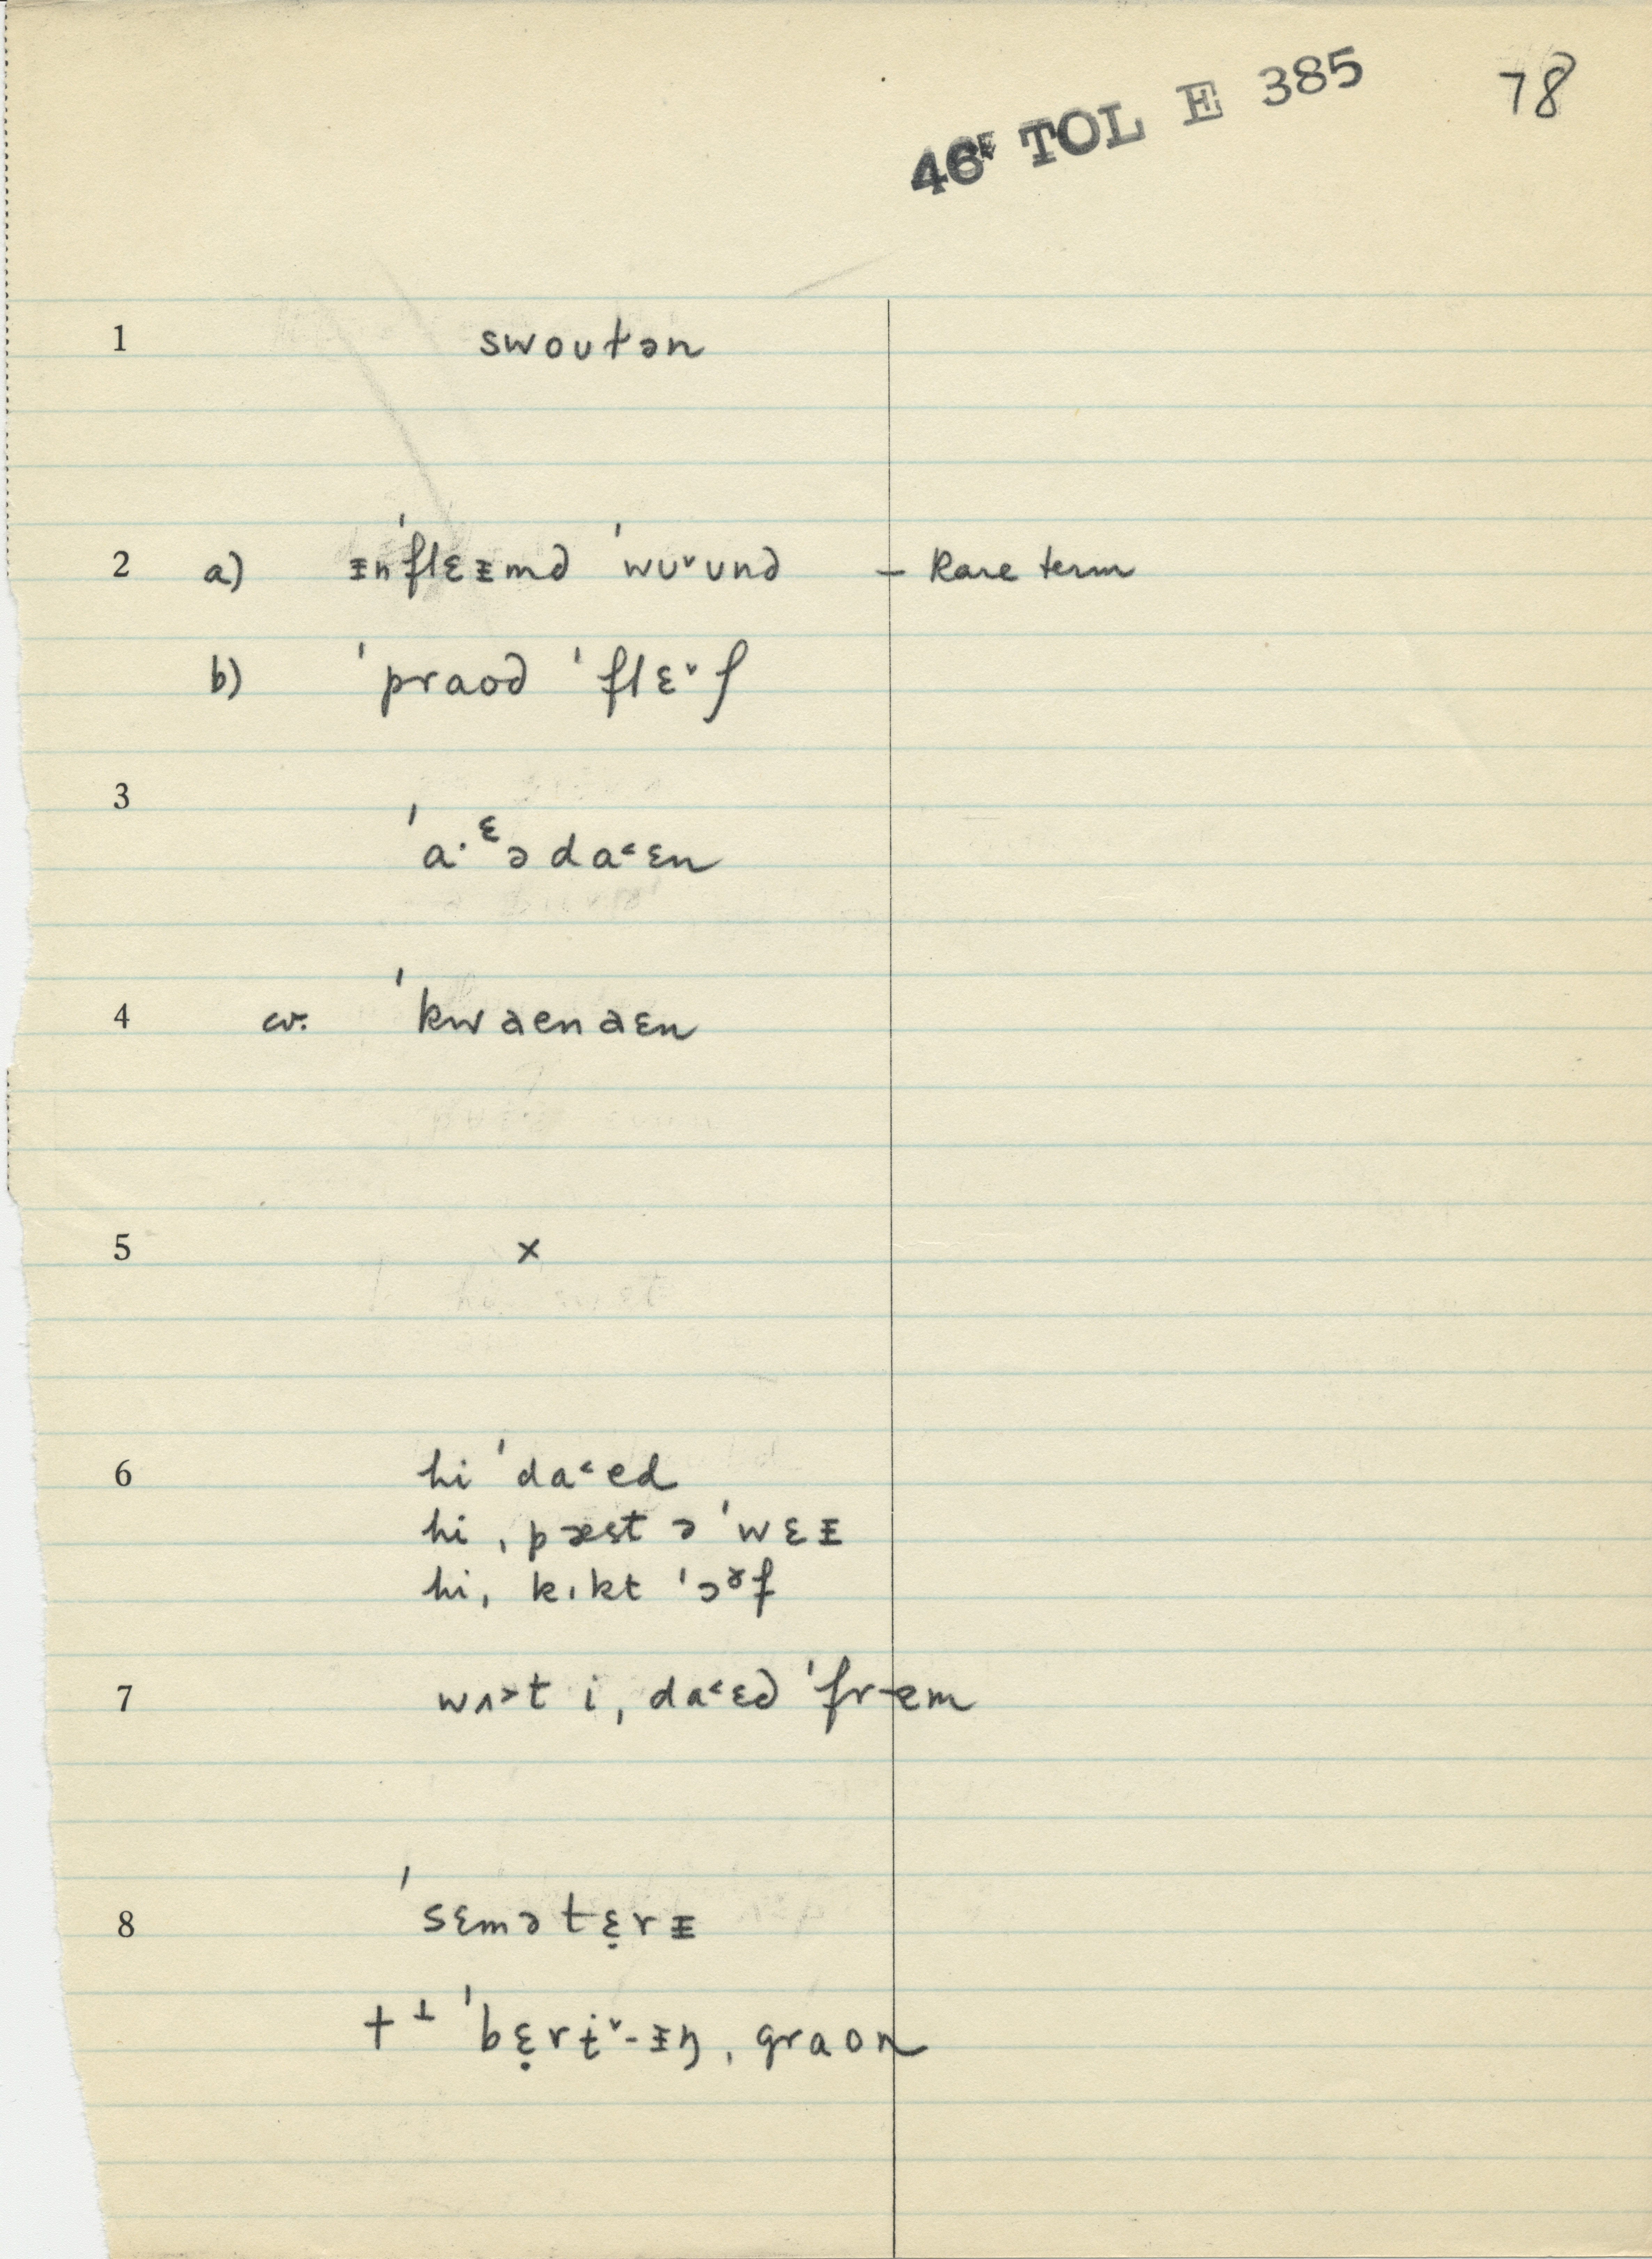 46E TOL E 385 78
1 swoutən
2 a) ᵻnˈflɛᵻmd ˈwu˅und – Rare term
b) ˈpraod ˈflɛ˅ʃ
3 ˈa·ᵋəda˂ɛn
4 cv. ˈkwaenaɛn
5 x
6 hi ˈda˂ed
hi ˌpæst ə ˈwɛᵻ
hi ˌkɪkt ˈɔᶠf
7 wʌ˃t i ˌda˂ɛd ˈfrəm
8 ˈsɛmətɛ̣rᵻ
+ ⊥ ˈbɛ̣rɨ˅-ᵻŋ ˌgraon